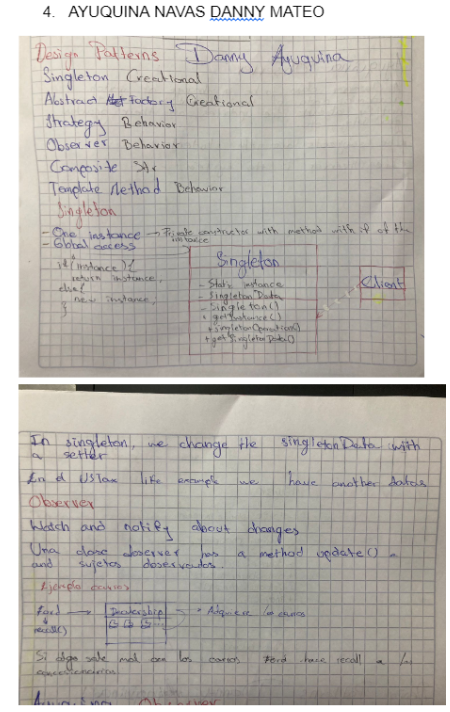 4. AYUQUINA NAVAS DANNY MATEO
Design Patterns Danny Ayuquina
Singleton Creational
Abstract Factory Creational
Strategy Behavior
Observer Behavior
Composite Str
Template Method Behavior
Singleton
- One instance → Private constructor with method with if of the instance
- Global access
if (instance) {
return instance,
else {
new instance,
}
Singleton
- Static instance
- Singleton Data
- Singleton()
+ getInstance()
+ singletonOperation()
+ getSingletonData()
Client
In singleton, we change the singletonData with
a setter
like example we have another datas
Observer
Watch and notify about changes
Una clase observer has a method update()
and sujetos observados.
Ejemplo carros
Ford → Dealership
recall()
Si algo sale mal con los carros Ford hace recall a
Observer